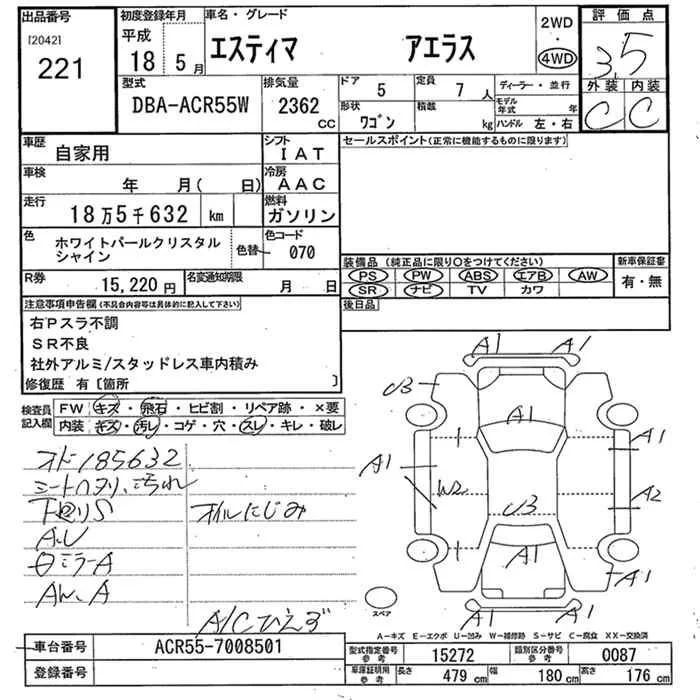 出品番号
[2042]
221
初度登録年月
平成
18 5 月
車名・グレード
エスティマ アエラス
2WD
・
4WD
評価点
3.5
外装 内装
C C
型式
DBA-ACR55W
排気量
2362
CC
ドア
5
定員
7 人
形状
ワゴン
積載
kg
ディーラー・並行
モデル年式 年
ハンドル 左・右
車歴
自家用
シフト
IAT
車検
年 月( 日)
冷房
AAC
走行
18万5千632 km
燃料
ガソリン
色
ホワイトパールクリスタル
シャイン
色替
色コード
070
R券
15,220 円
名変通知期限
月 日
セールスポイント(正常に機能するものに限ります)
装備品 (純正品に限り○をつけてください)
PS PW ABS エアB AW
SR ナビ TV カワ
新車保証書
有・無
後日品
注意事項申告欄(不具合内容等は具体的に記入して下さい)
右Pスラ不調
SR不良
社外アルミ/スタッドレス車内積み
修復歴 有〔箇所 〕
検査員
記入欄
FW キズ・飛石・ヒビ割・リペア跡・×要
内装 キズ・汚レ・コゲ・穴・スレ・キレ・破レ
オド185632
シートヘタリ、汚れ
下回りS オイルにじみ
A.U
ミラーA
A/Cひえず
A1 A1
U3
A1
A1
A1
W2
A2
U3
A1
A1
A1 A1
スペア
A-キズ E-エクボ U-凹み W-補修跡 S-サビ C-腐食 XX-交換済
車台番号
ACR55-7008501
登録番号
型式指定番号
参考
15272
類別区分番号
参考
0087
車庫証明用
参考
長さ
479 cm
幅
180 cm
高さ
176 cm